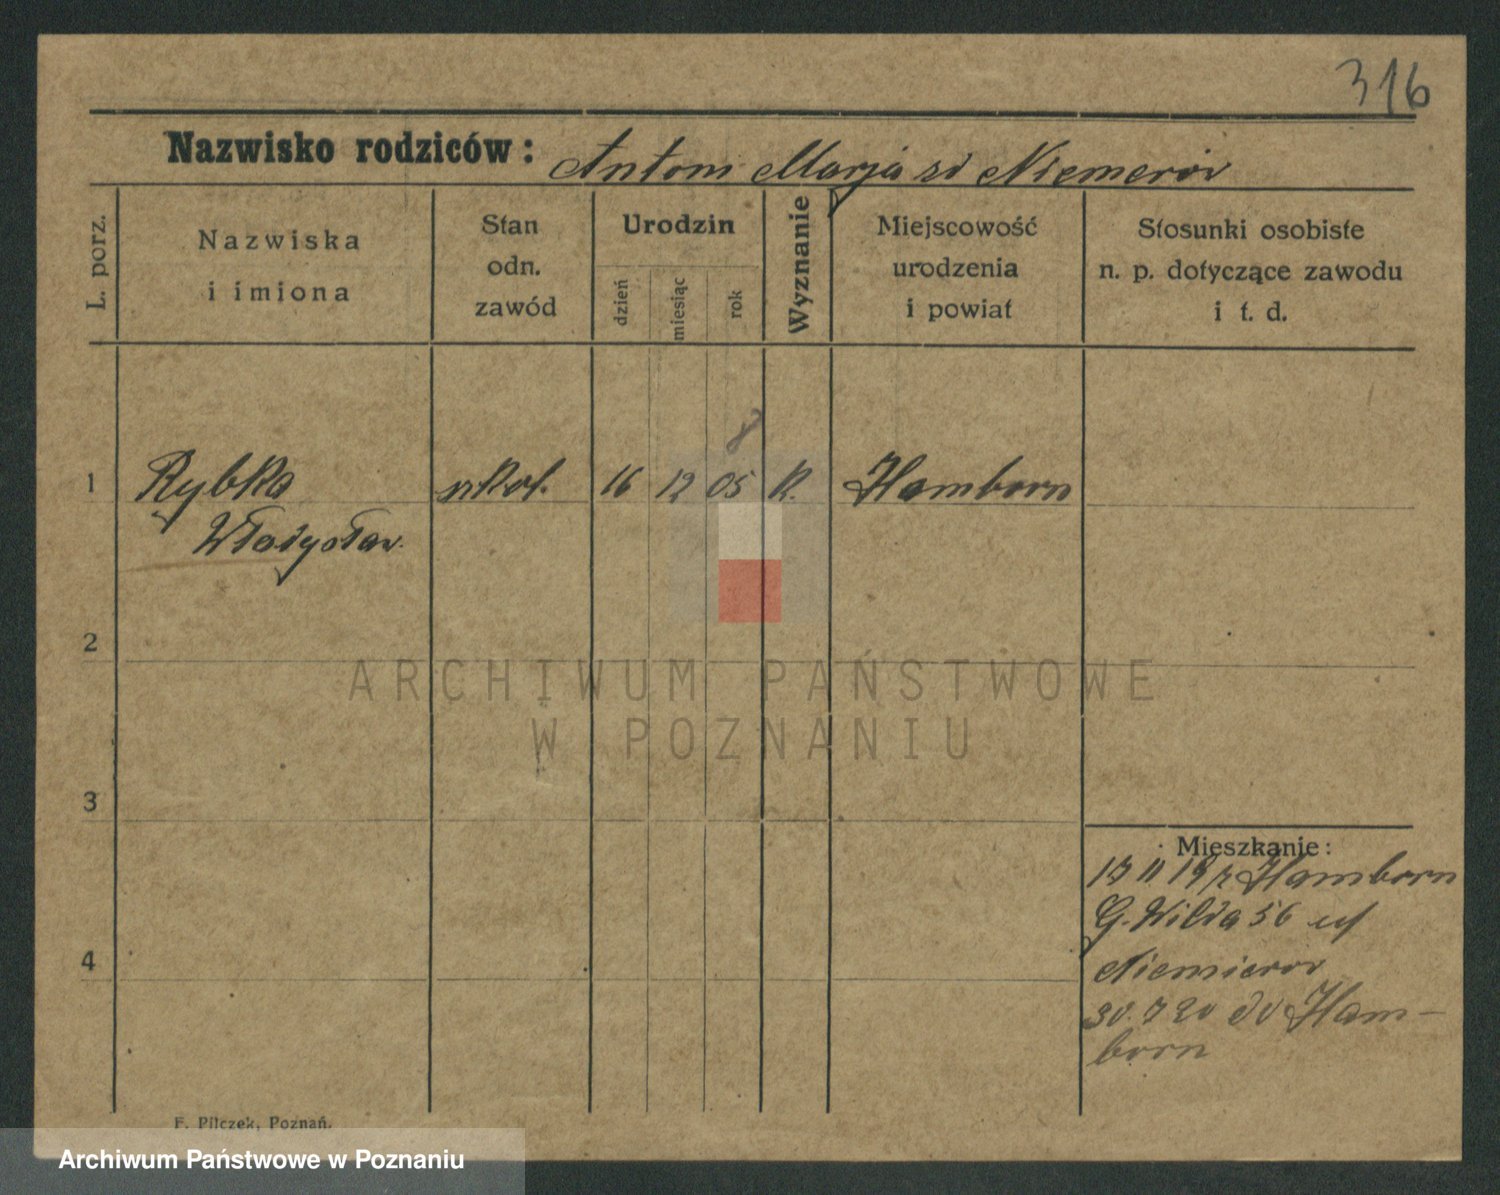 316
Nazwisko rodziców: Antoni Marja zd Niemerów
L. porz.
Nazwiska
i imiona
Stan
odn.
zawód
Urodzin
dzień
miesiąc
rok
Wyznanie
Miejscowość
urodzenia
i powiat
Stosunki osobiste
n. p. dotyczące zawodu
i t. d.
8
1 Rybka szkol. 16 12 05 K. Hamborn
Władysław.
2
ARCHIWUM PAŃSTWOWE
W POZNANIU
3
Mieszkanie:
17 11 19 z Hamborn
G. Wilda 56
4
Niemierów
30.7 20 do Ham-
born
F. Pilczek, Poznań.
Archiwum Państwowe w Poznaniu